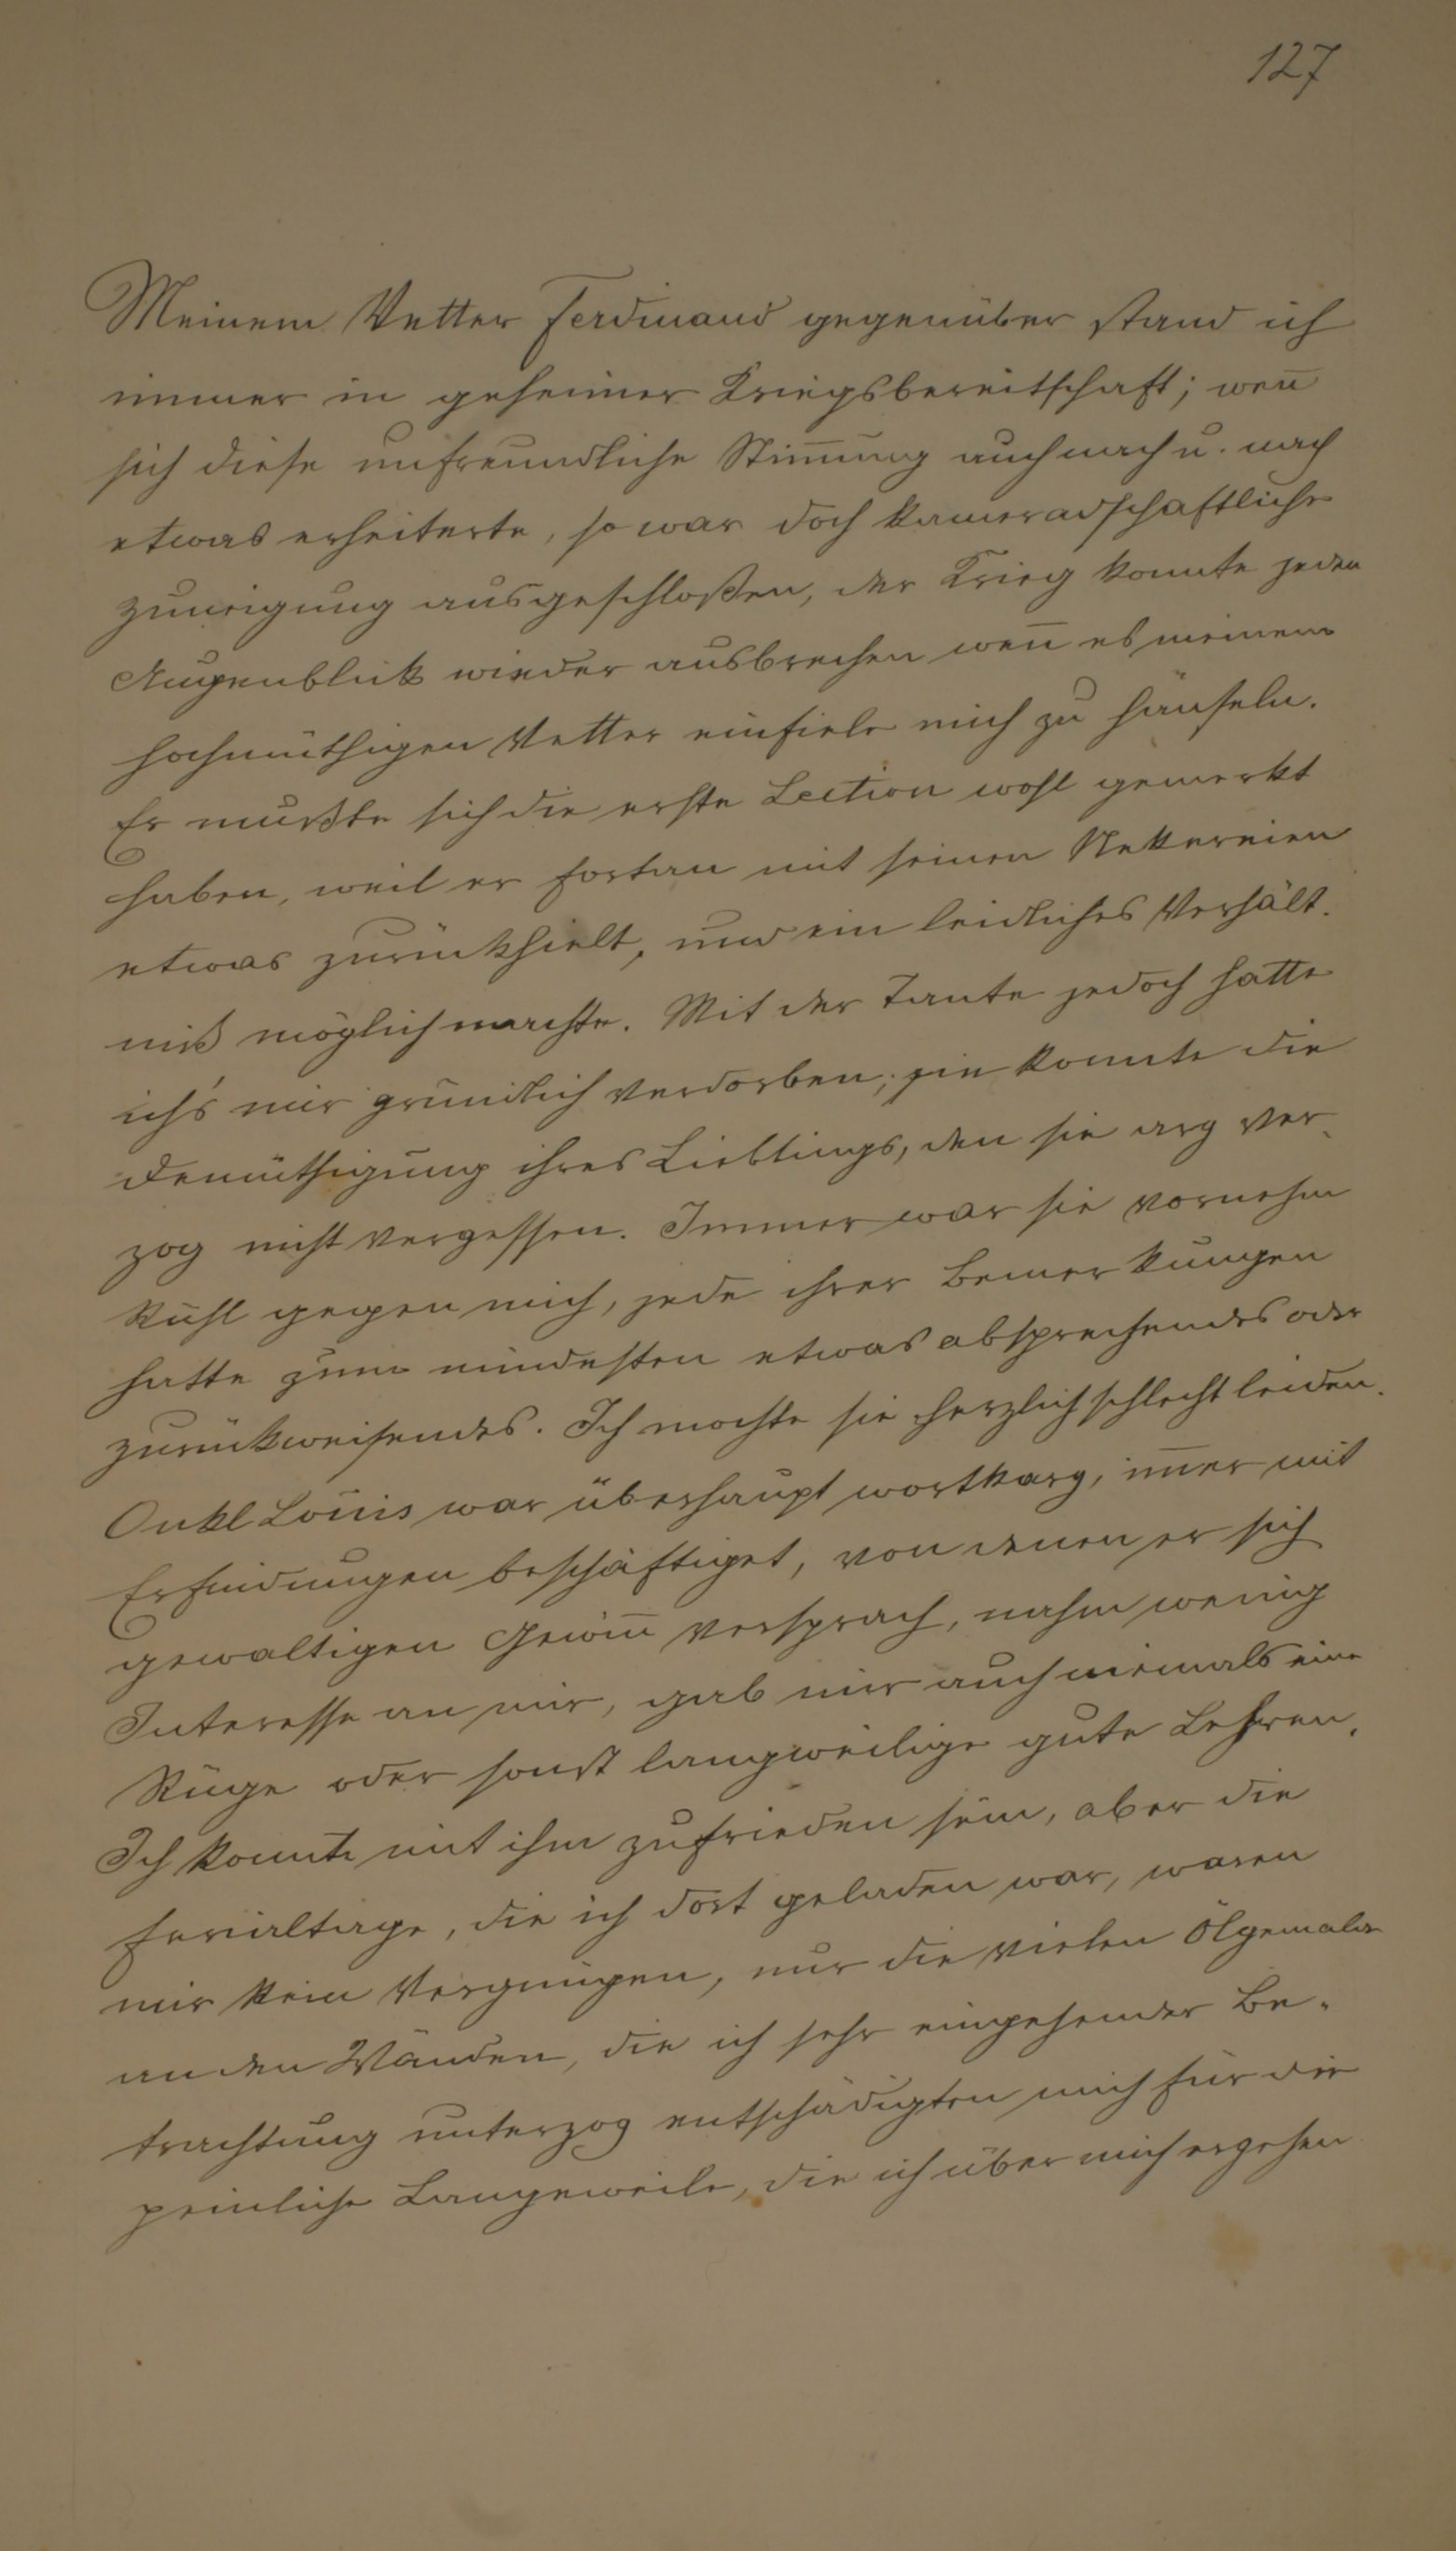 127
Meinem Vetter Ferdinand gegenüber stand ich
immer in geheimer Kriegsbereitschaft; weñ
sich diese unfreundliche Stim̄ung auch nach u. nach
etwas erheiterte, so war doch kameradschaftliche
Zuneigung ausgeschloßen, der Krieg konnte jeden
Augenblick wieder ausbrechen weñ es meinem
hochmüthigen Vetter einfiele mich zu hänseln.
Er mußte sich die erste Lection wohl gemerkt
haben, weil er fortan mit seinen Nekkereien
etwas zurückhielt, und ein leidliches Verhält-
niß möglich machte. Mit der Tante jedoch hatte
ich's mir gründlich verdorben; sie konnte die
Demüthigung ihres Lieblings, den sie arg ver-
zog nicht vergessen. Immer war sie vornehm
kühl gegen mich, jede ihrer Bemerkungen
hatte zum mindesten etwas absprechendes oder
zurückweisendes. Ich mochte sie herzlich schlecht leiden.
Onkl Louis war überhaupt wortkarg, im̄er mit
Erfindungen beschäftiget, von denen er sich
gewaltigen Gewiñ versprach, nahm wenig
Interesse an mir, gab mir auch niemals eine
Rüge oder sonst langweilige gute Lehren.
Ich konnte mit ihm zufrieden sein, aber die
Ferialtage, die ich dort geladen war, waren
mir kein Vergnügen, nur die vielen Ölgemälde
an den Wänden, die ich sehr eingehender Be-
trachtung unterzog entschädigten mich für die
peinliche Langeweile, die ich über mich ergehen